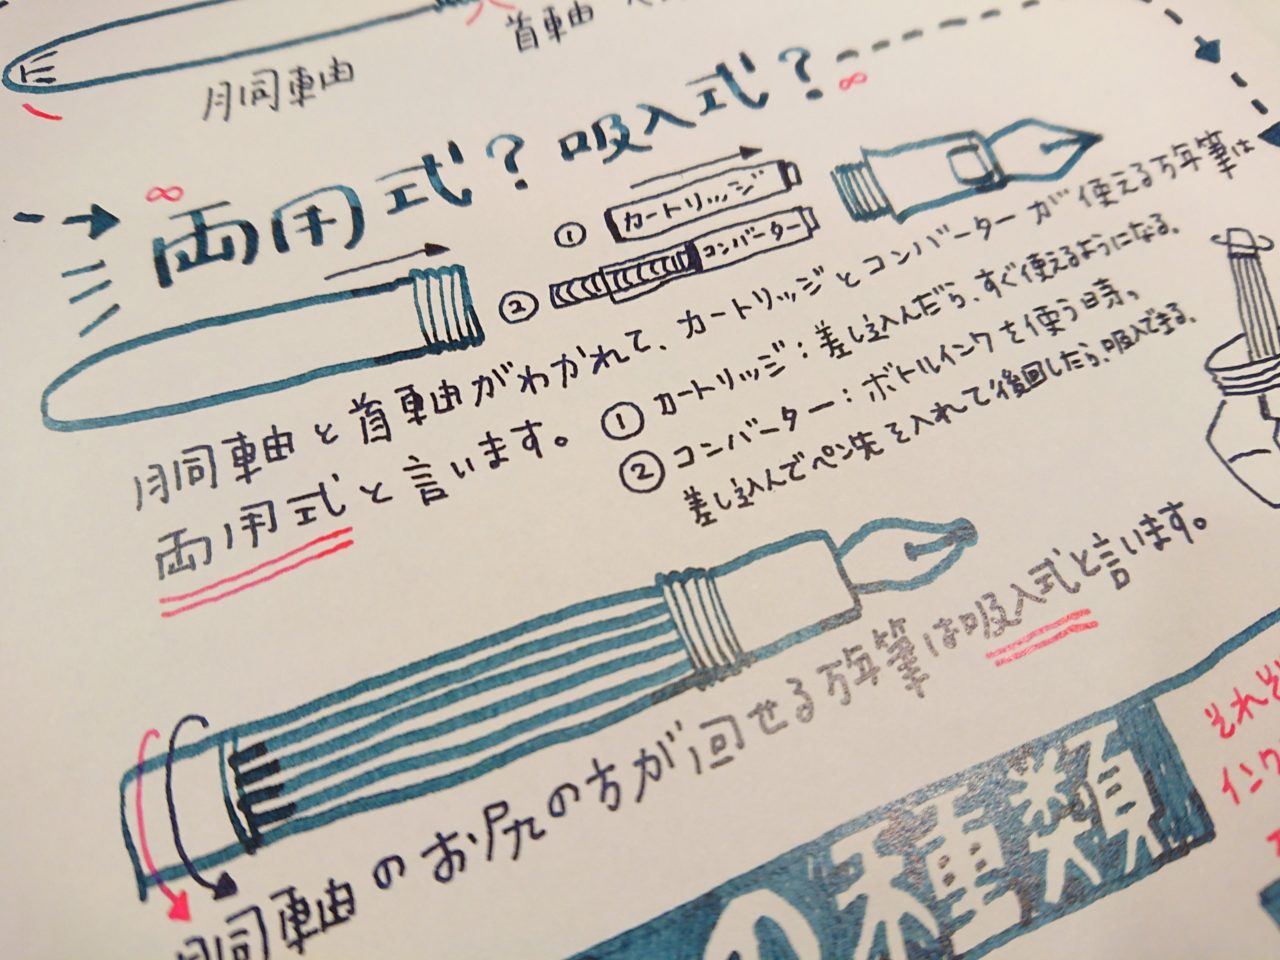 首軸
胴軸
両用式？吸入式？
① カートリッジ
② コンバーター
胴軸と首軸がわかれて、カートリッジとコンバーターが使える万年筆は
両用式と言います。
① カートリッジ：差し込んだら、すぐ使えるようになる。
② コンバーター：ボトルインクを使う時。
差し込んでペン先を入れて後回したら、吸入できる。
胴軸のお尻の方が回せる万年筆は吸入式と言います。
の種類
それぞ
インク